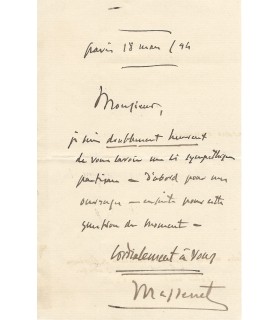 Paris 18 mars /94
Monsieur,
je suis doublement heureux
de vous savoir un si sympathique
partisan – d'abord pour mes
ouvrages – ensuite pour cette
question du moment –
Cordialement à vous
Massenet